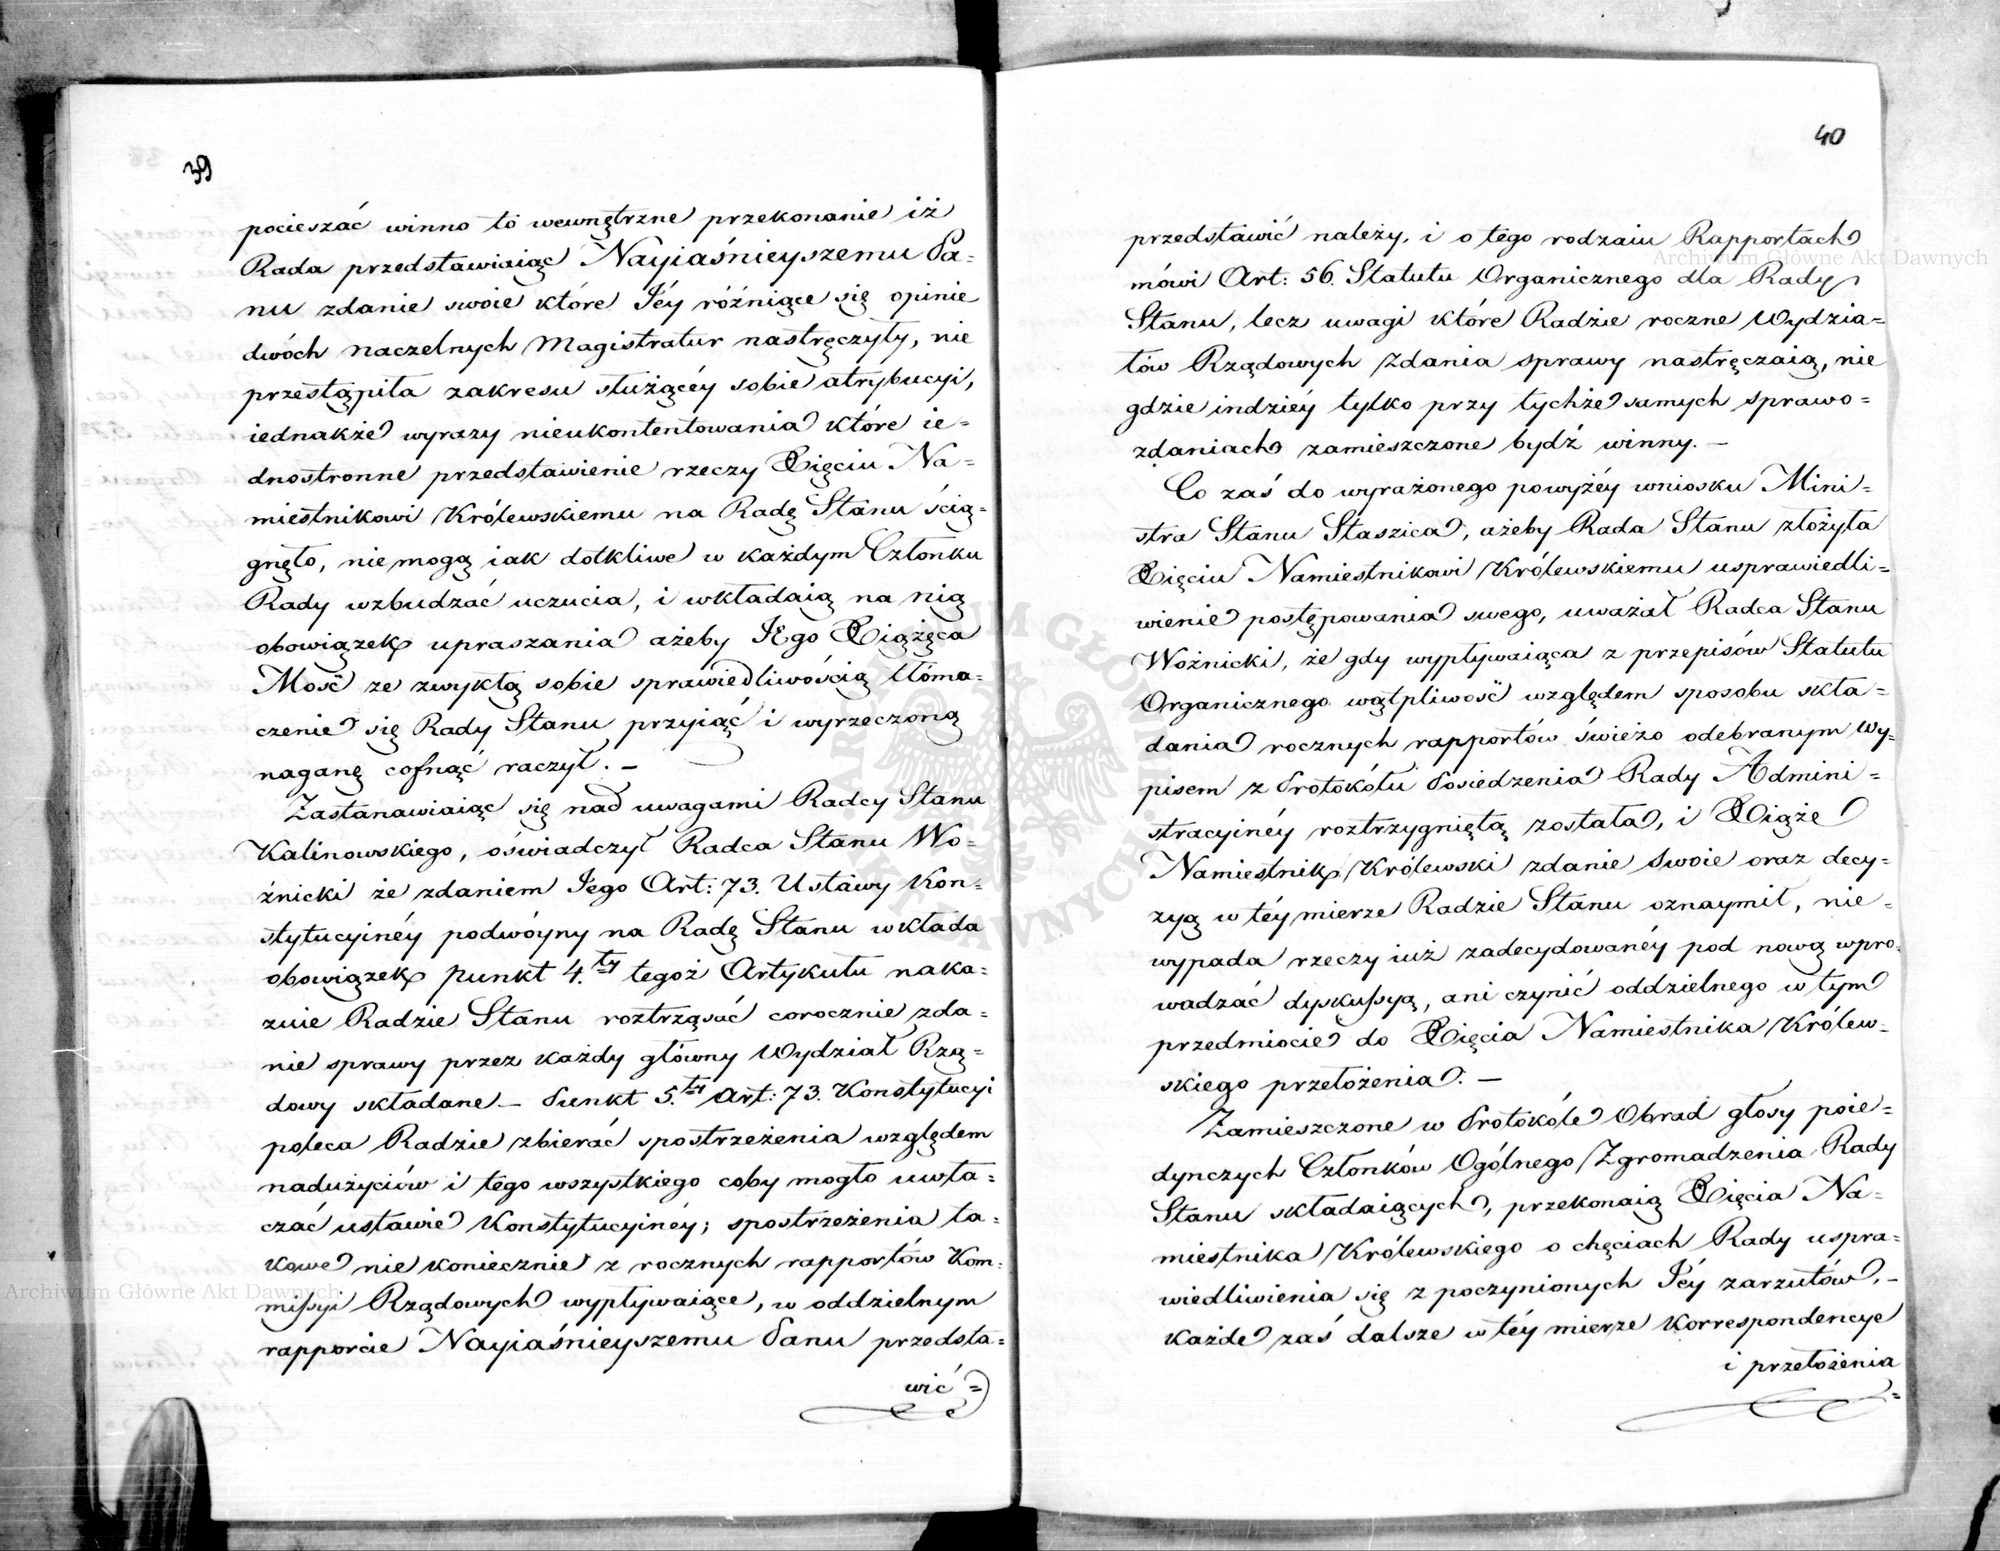 39
pocieszać winno to wewnętrzne przekonanie iż
Rada przedstawiaiąc Nayiaśnieyszemu Pa=
nu zdanie swoie które Jéy różniące się opinie
dwóch naczelnych Magistratur nastręczyły, nie
przestąpiła zakresu służącéy sobie atrybucyi,
iednakże wyrazy nieukontentowania które ie=
dnostronne przedstawienie rzeczy Xięciu Na=
miestnikowi Królewskiemu na Radę Stanu ścią=
gnęło, nie mogą iak dotkliwe w każdym Członku
Rady wzbudzać uczucia, i wkładaią na nią
obowiązek upraszania ażeby JEgo Xiążęca
Mość ze zwykłą sobie sprawiedliwością tłóma=
czenie się Rady Stanu przyiąć i wyrzeczoną
naganę cofnąć raczył. —
Zastanawiaiąc się nad uwagami Radcy Stanu
Kalinowskiego, oświadczył Radca Stanu Wo=
źnicki że zdaniem Jego Art: 73. Ustawy Kon=
stytucyinéy podwóyny na Radę Stanu wkłada
obowiązek punkt 4.ty tegoż Artykułu naka=
zuie Radzie Stanu roztrząsać corocznie zda=
nie sprawy przez każdy główny Wydział Rzą=
dowy składane — Punkt 5.ty Art: 73. Konstytucyi
poleca Radzie zbierać spostrzeżenia względem
nadużyciów i tego wszystkiego coby mogło uwła=
czać ustawie Konstytucyinéy; spostrzeżenia ta=
kowe nie koniecznie z rocznych rapportów Kom=
missyi Rządowych wypływaiące, w oddzielnym
rapporcie Nayiaśnieyszemu Panu przedsta=
wić =
40
przedstawić należy, i o tego rodzaiu Rapportach
mówi Art: 56. Statutu Organicznego dla Rady
Stanu, lecz uwagi które Radzie roczne Wydzia=
łów Rządowych zdania sprawy nastręczaią, nie
gdzie indziéy tylko przy tychże samych sprawo=
zdaniach zamieszczone bydź winny. —
Co zaś do wyrażonego powyżéy wniosku Mini=
stra Stanu Staszica, ażeby Rada Stanu złożyła
Xięciu Namiestnikowi Królewskiemu usprawiedli=
wienie postępowania swego, uważał Radca Stanu
Woźnicki, że gdy wypływaiąca z przepisów Statutu
Organicznego wątpliwość względem sposobu skła=
dania rocznych rapportów świeżo odebranym Wy=
pisem z Protokółu Posiedzenia Rady Admini=
stracyinéy roztrzygniętą została, i Xiąże
Namiestnik Królewski zdanie Swoie oraz decy=
zyą w téy mierze Radzie Stanu oznaymił, nie=
wypada rzeczy iuż zadecydowanéy pod nową wpro=
wadzać dyskussyą, ani czynić oddzielnego w tym
przedmiocie do Xięcia Namiestnika Królew=
skiego przełożenia. —
Zamieszczone w Protokóle Obrad głosy poie=
dynczych Członków Ogólnego Zgromadzenia Rady
Stanu składaiących, przekonaią Xięcia Na=
miestnika Królewskiego o chęciach Rady uspra=
wiedliwienia się z poczynionych Jéy zarzutów, —
każde zaś dalsze w téy mierze korrespondencye
i przełożenia =
Archiwum Główne Akt Dawnych
Archiwum Główne Akt Dawnych
ARCHIWUM GŁÓWNE AKT DAWNYCH